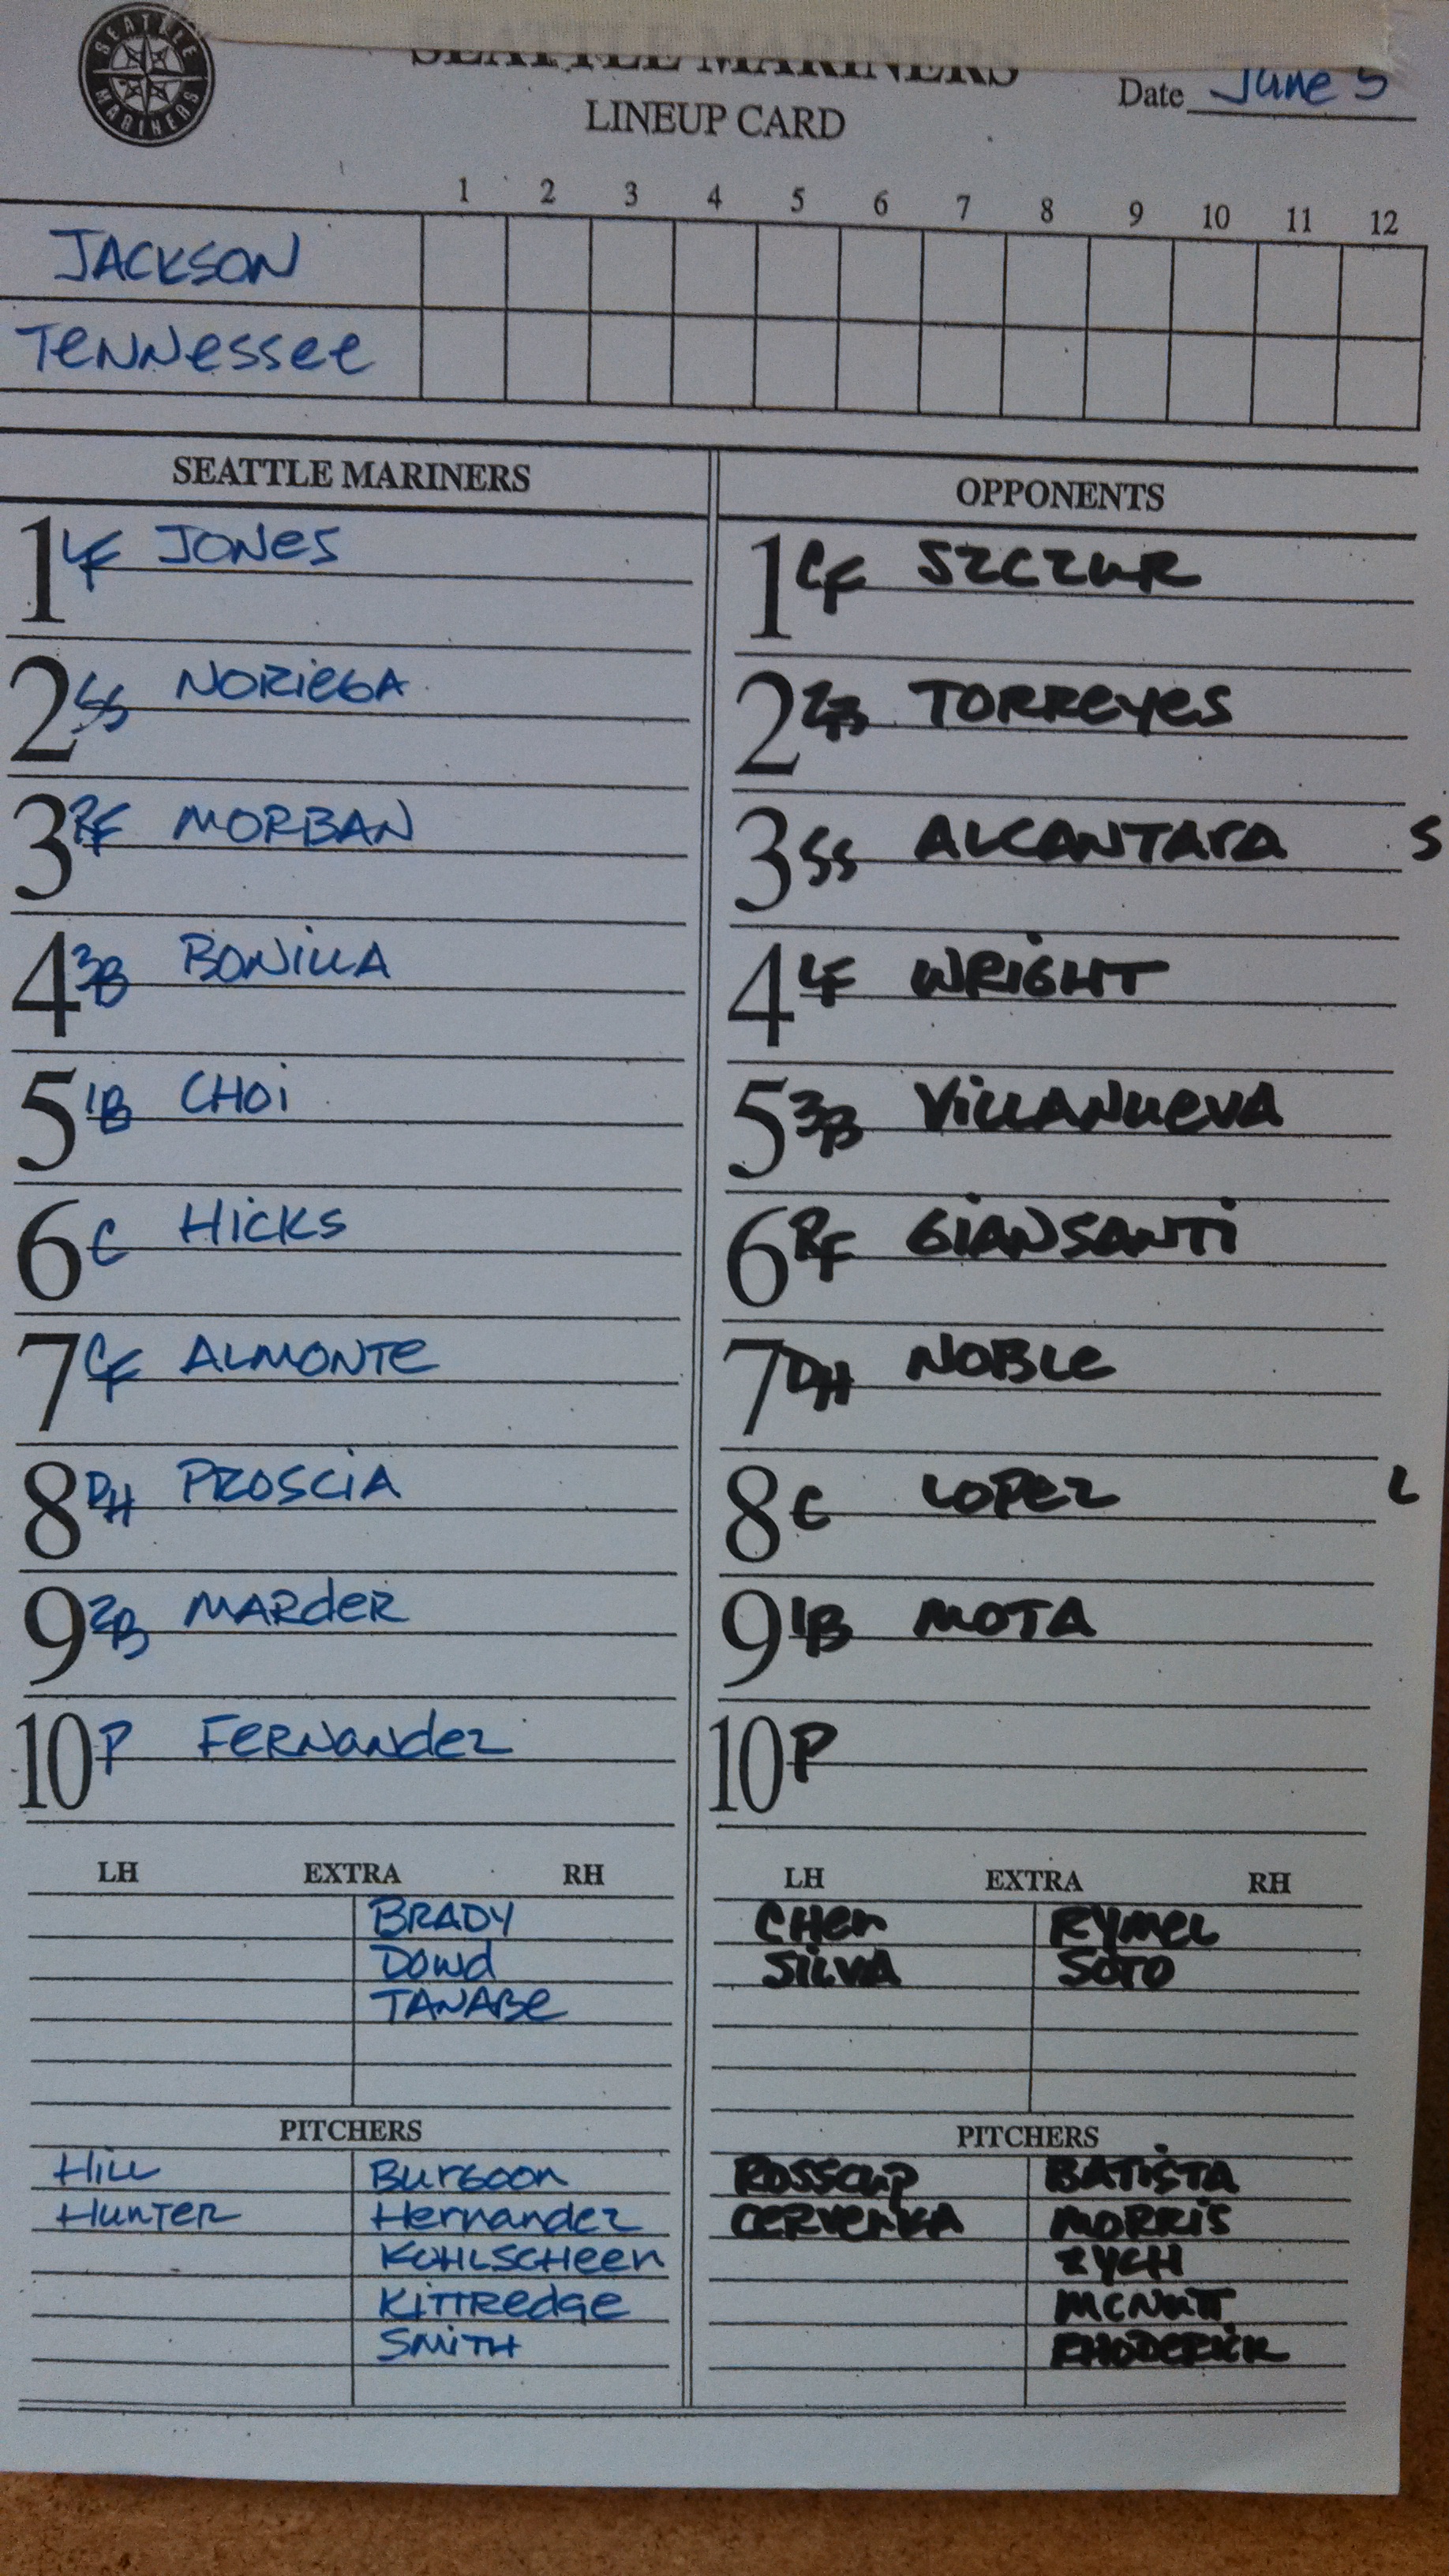 SEATTLE MARINERS
SEATTLE MARINERS
LINEUP CARD
Date June 5
1 2 3 4 5 6 7 8 9 10 11 12
JACKSON
TENNessee
SEATTLE MARINERS
1 LF JONes
2 SS NORiEGA
3 RF MORBAN
4 3B BONiLLA
5 1B CHOi
6 C HicKs
7 CF ALMONTe
8 DH PROSCiA
9 2B MARdeR
10 P FeRNANdez
LH EXTRA RH
BRADY
Dowd
TANABe
PITCHERS
Hill Burgoon
HunTeR Hernandez
KOHLSCHeen
KiTTRedge
SMiTH
OPPONENTS
1 CF SZCZuR
2 2B TORReyes
3 SS ALCANTArA S
4 LF WRiGHT
5 3B ViLLANuevA
6 RF GiANSANTi
7 DH NOBLe
8 C LOPez L
9 1B MOTA
10 P
LH EXTRA RH
CHen RYMeL
SiLVA SOTO
PITCHERS
ROSSCuP BATiSTA
CeRVenKA MORRiS
ZYCH
MCNuTT
RHODeRiCK